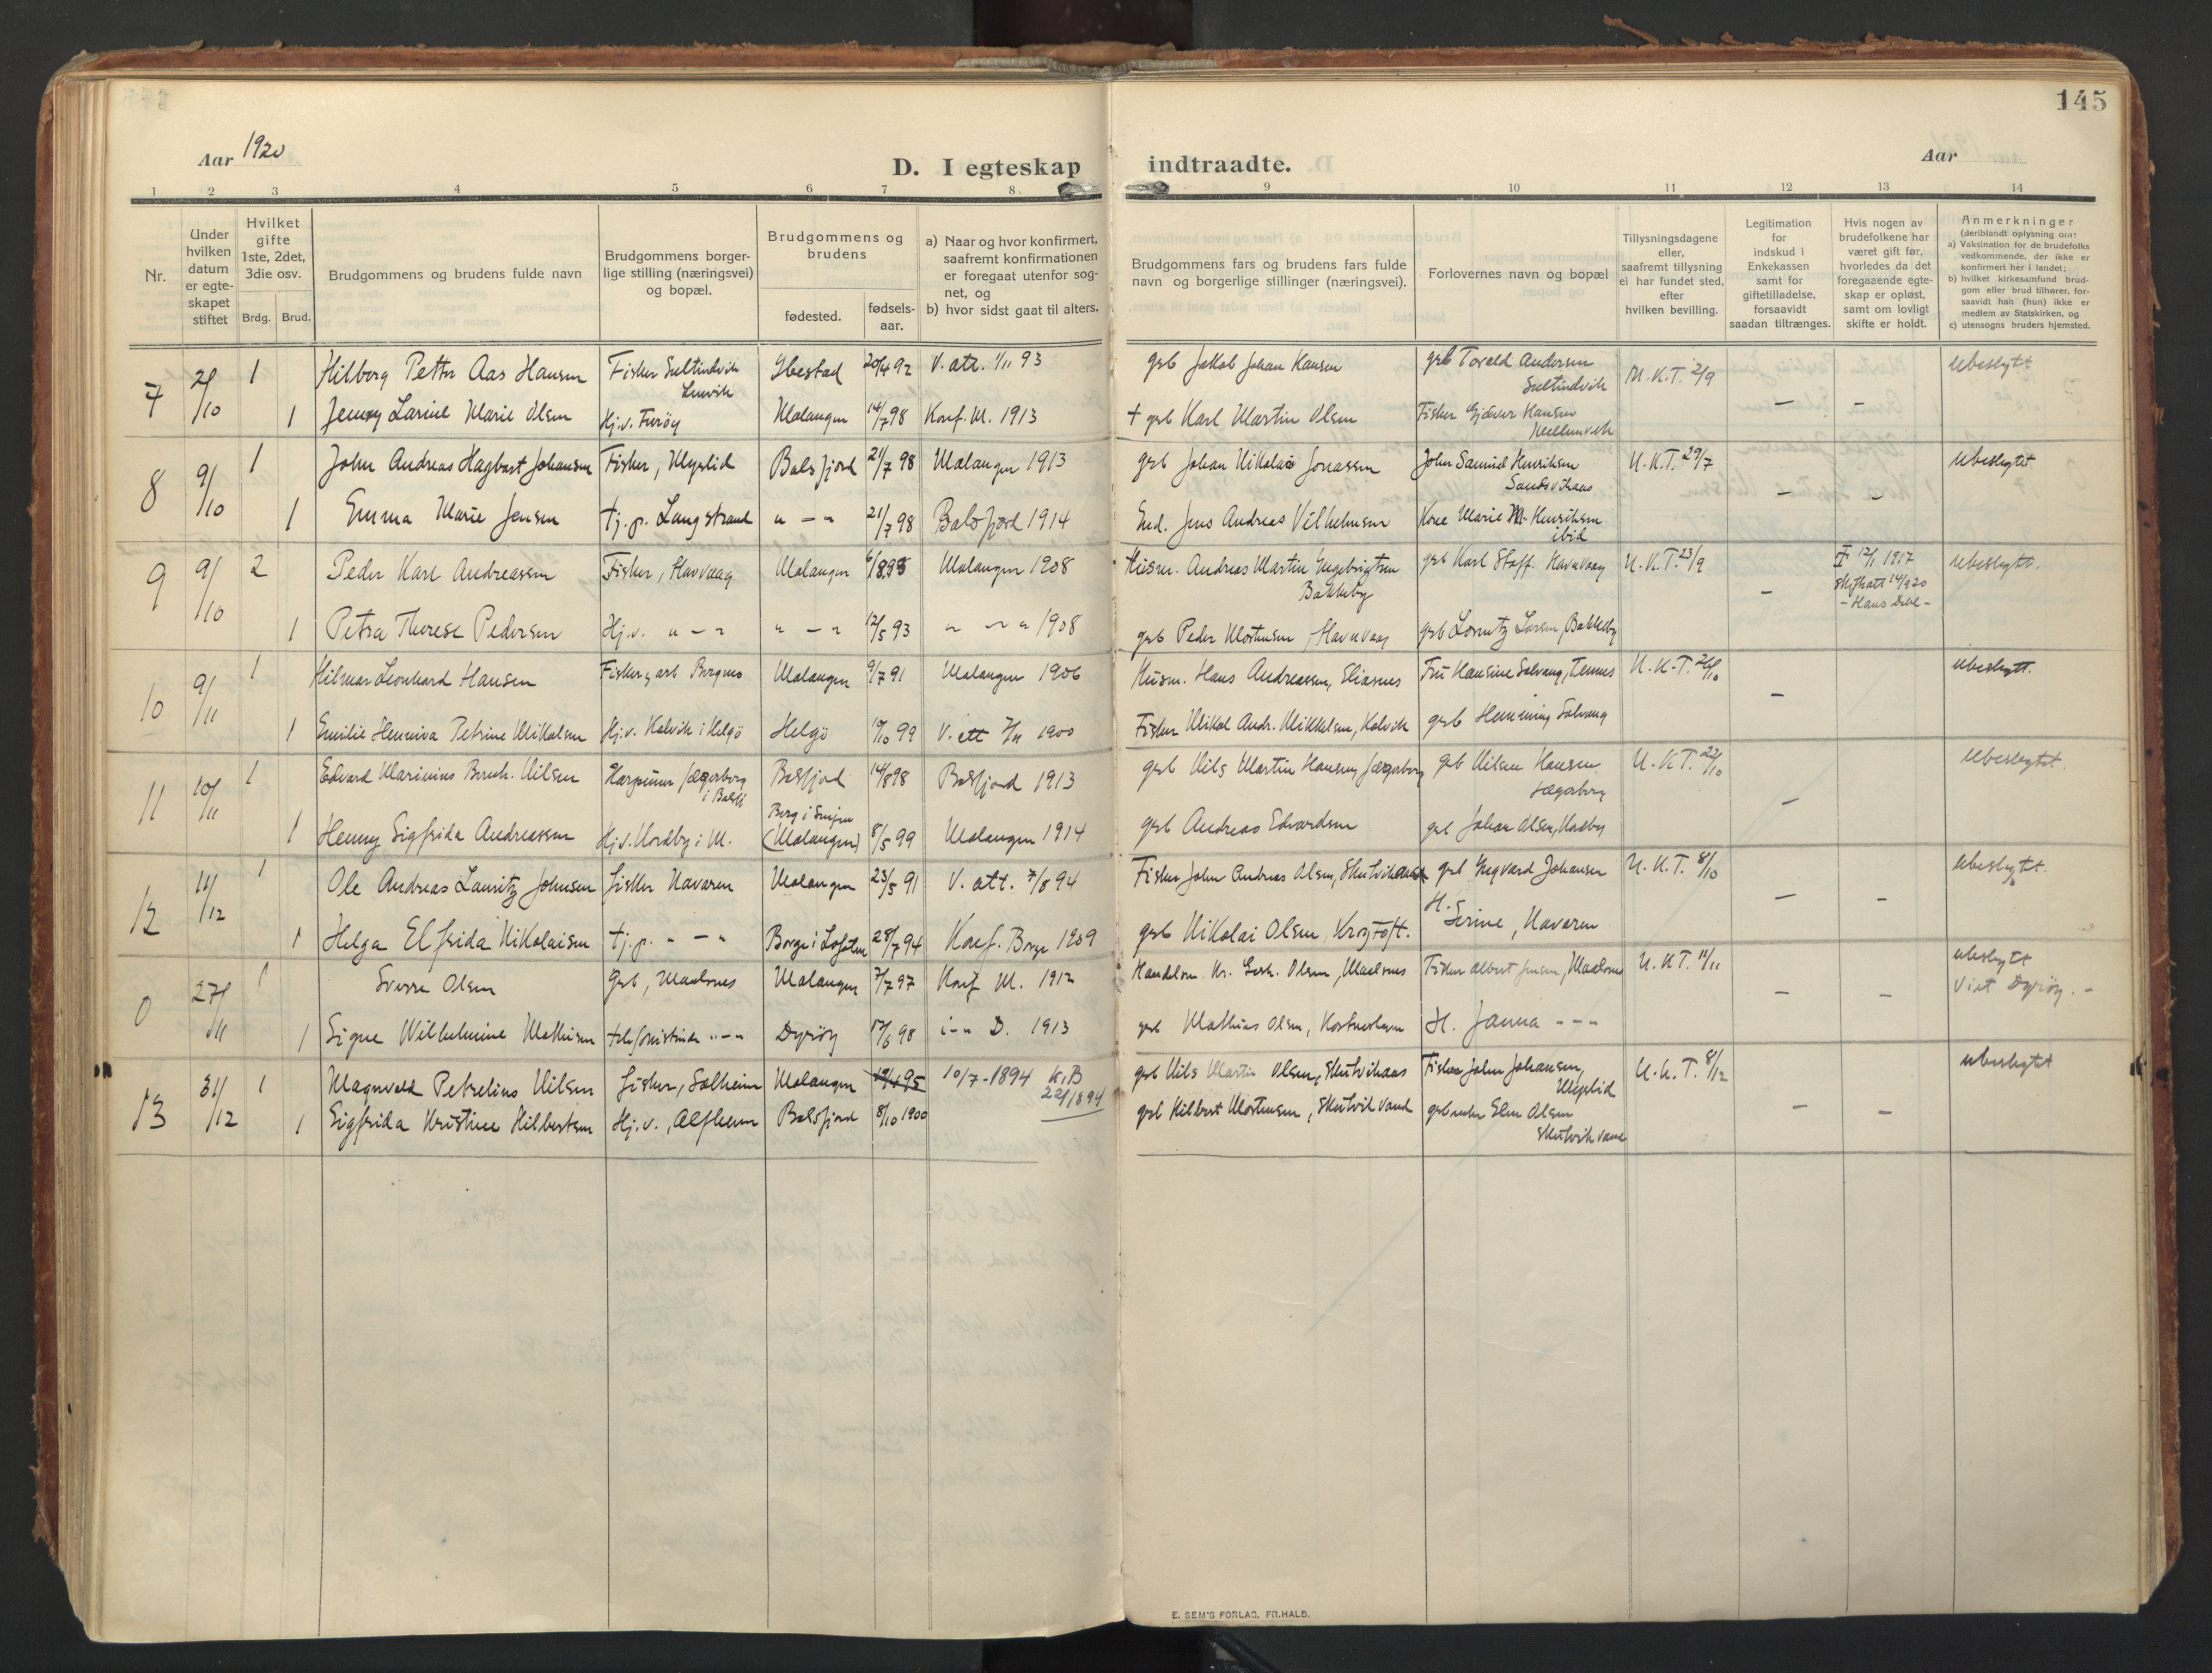 145
Aar 1920
D. I egteskap indtraadte.
Aar
1 2 3 4 5 6 7 8 9 10 11 12 13 14
Nr.
Under hvilken datum er egte-skapet stiftet
Hvilket gifte 1ste, 2det, 3die osv.
Brdg. Brud.
Brudgommens og brudens fulde navn
Brudgommens borger-lige stilling (næringsvei) og bopæl.
Brudgommens og brudens
fødested. fødsels-aar.
a) Naar og hvor konfirmert, saafremt konfirmationen er foregaat utenfor sog-net, og
b) hvor sidst gaat til alters.
Brudgommens fars og brudens fars fulde navn og borgerlige stillinger (næringsvei).
Forlovernes navn og bopæl
Tillysningsdagene eller, saafremt tillysning ei har fundet sted, efter hvilken bevilling.
Legitimation for indskud i Enkekassen samt for giftetilladelse, forsaavidt saadan tiltrænges.
Hvis nogen av brudefolkene har været gift før, hvorledes da det foregaaende egte-skap er opløst, samt om lovligt skifte er holdt.
Anmerkninger (deriblandt oplysning om: a) Vaksination for de brudefolks vedkommende, der ikke er konfirmert her i landet; b) hvilket kirkesamfund brud-gom eller brud tilhører, for-saavidt han (hun) ikke er medlem av Statskirken, og c) utensogns bruders hjemsted.
7 2/10 1 Hilberg Petter Aas Hansen Fisker Sultindvik Lenvik Ibestad 20/4 92 V. att. 1/11 93 grb Jakob Johan Hansen grb Torald Andersen Sultindvik U.K.T. 2/9 ubeslegtt
1 Jenny Larine Marie Olsen Hj.v. Furøy Malangen 14/7 98 Konf. M. 1913 + grb Karl Martin Olsen Fisker Gjæver Hansen — —
8 9/10 1 John Andreas Hagbart Johansen Fisker, Myrlid Balsfjord 21/7 98 Malangen 1913 grb Johan Nikolai Jonassen John Samuel Henriksen Sandsvikaas U.K.T. 29/7 ubeslegtet
1 Emma Marie Jensen tj.p. Langstrand " — " 21/7 98 Balsfjord 1914 Jens Andreas Vilhelmsen Kone Marie M. Henriksen ibid — —
9 9/10 2 Peder Karl Andreassen Fisker, Havvaag Malangen 6/8 Malangen 1908 Husm. Andreas Martin Ingebrigtsen Bakkeby grb Karl Staff. Havnvaag U.K.T. 23/9 — 12/1 1917 14/9 20 ubeslegtt.
1 Petra Therese Pedersen Hj.v. " — " " — " 12/5 93 " — " 1908 grb Peder Mortensen, Havnvaag grb Lorentz Larsen, Bakkeby
10 9/11 1 Hilmar Leonhard Hansen Fisker, arb Malangen 9/7 91 Malangen 1906 Husm. Hans Andreassen, Eliasnes Fru Hansine Solvang, Tennes U.K.T. 24/10 — ubeslegtt.
1 Emilie Henniva Petrine Mikkalsen Hj.v. Kalvik i Helgö Helgö 19/10 99 V. att 7/11 1900 Fisker Mikal Andr. Mikkelsen, Kalvik grb Hemming Solvang
11 10/11 1 Edvard Marinius Bernh. Nilsen Jægerberg i Balsfj Balsfjord 14/8 98 Balsfjord 1913 grb Nils Martin Hansen, Jægerberg grb Nilsen Hansen Jægerberg U.K.T. 22/10 ubeslegtet.
1 Henny Sigfrida Andreassen Hj.v. Nordby i M. Berg i Senjen (Malangen) 8/5 99 Malangen 1914 grb Andreas Edvardsen grb Johan Olsen, Nordby —
12 11/12 1 Ole Andreas Lauritz Johnsen Fisker Navaren Malangen 23/5 91 V. att. 7/8 94 Fisker John Andreas Olsen, Skutvik grb Ingvard Johansen U.K.T. 8/10 — — ubeslegtt.
1 Helga Elfrida Nikolaisen tj.p. " — " Borge i Lofoten 28/7 94 Konf. Borge 1909 grb Nikolai Olsen, Krogtoft. H. Serine, Navaren
0 27/11 1 Sverre Olsen Grb, Maalsnes Malangen 7/7 97 Konf M. 1912 Handelsm. Kr. Gerh. Olsen, Maalsnes Fisker Albert Jensen, Maalsnes U.K.T. 11/11 — — ubeslegtt Viet Dyrøy. -
1 Signe Wilhelmine Mathisen telefonistinde " — " Dyrøy 17/6 98 " — " D. 1913 grb Mathias Olsen, H. Janna - - -
13 31/12 1 Magnvald Petrelius Nilsen Fisker, Solheim Malangen 19/4 95 10/7-1894 K.B 22/1894 grb Nils Martin Olsen, Skutvikaas Fisker John Johansen, Myrlid U.K.T. 8/12 ubeslegtet
1 Sigfrida Kristine Hilbertsen Hj.v., Alfheim Balsfjord 8/10 1900 grb Hilbert Mortensen, Skutvikvand Olsen Skutvikvand — —
E. SEM'S FORLAG, FR.HALD.